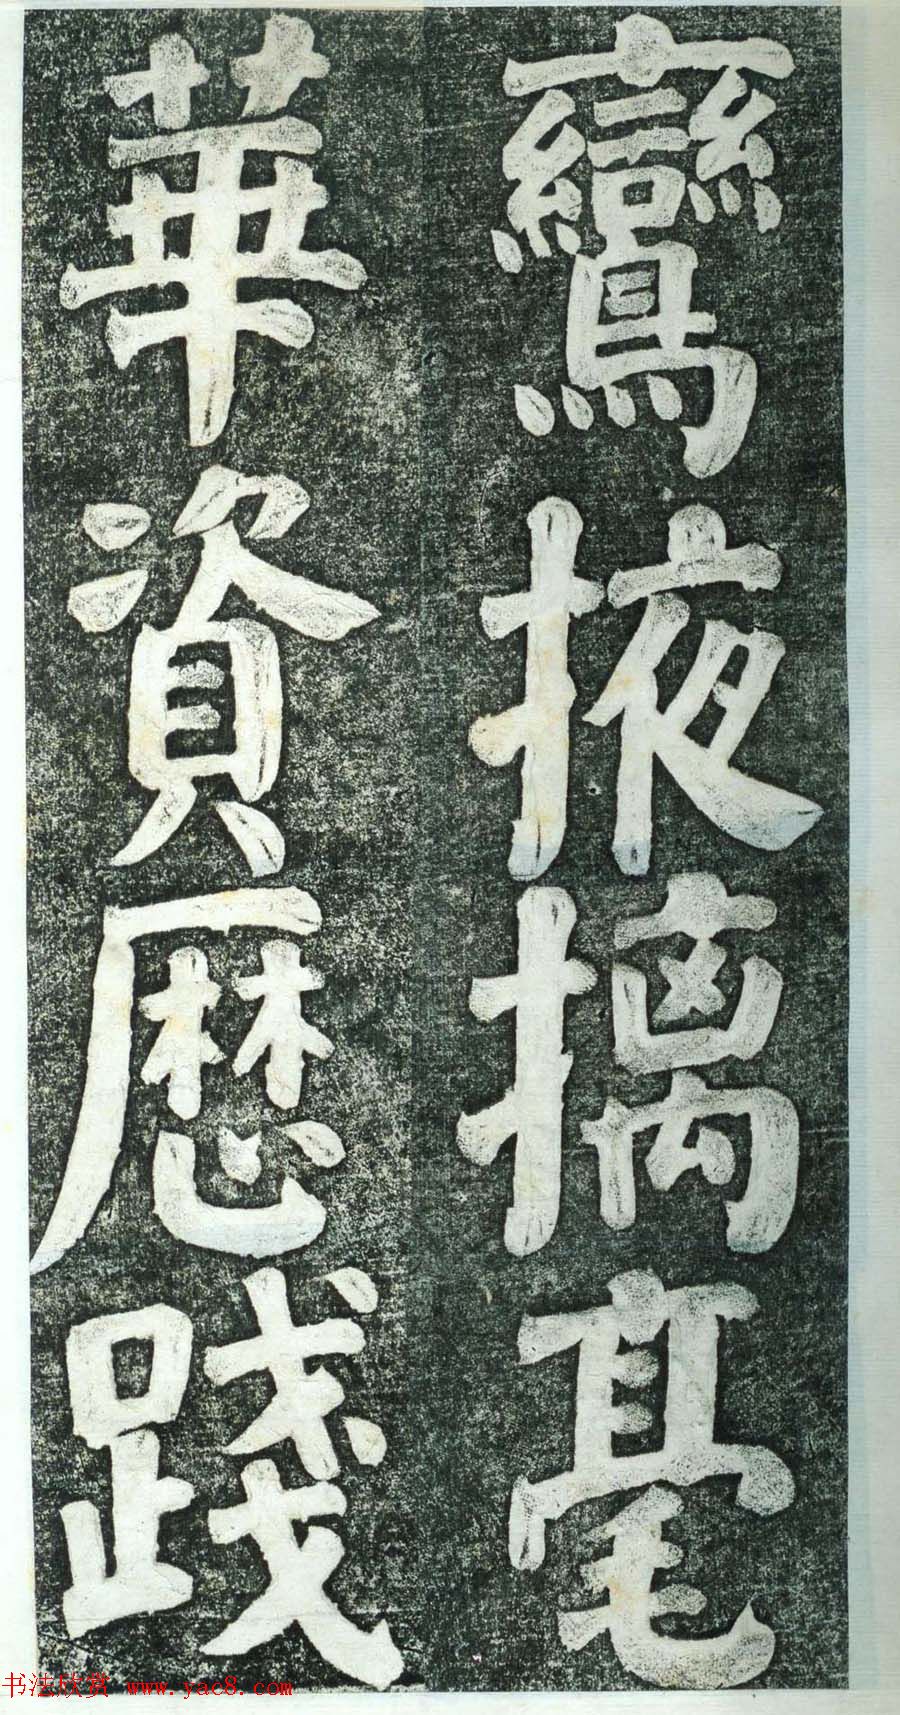 鸞掖摛毫
華資歷踐
书法欣赏 www.yac8.com